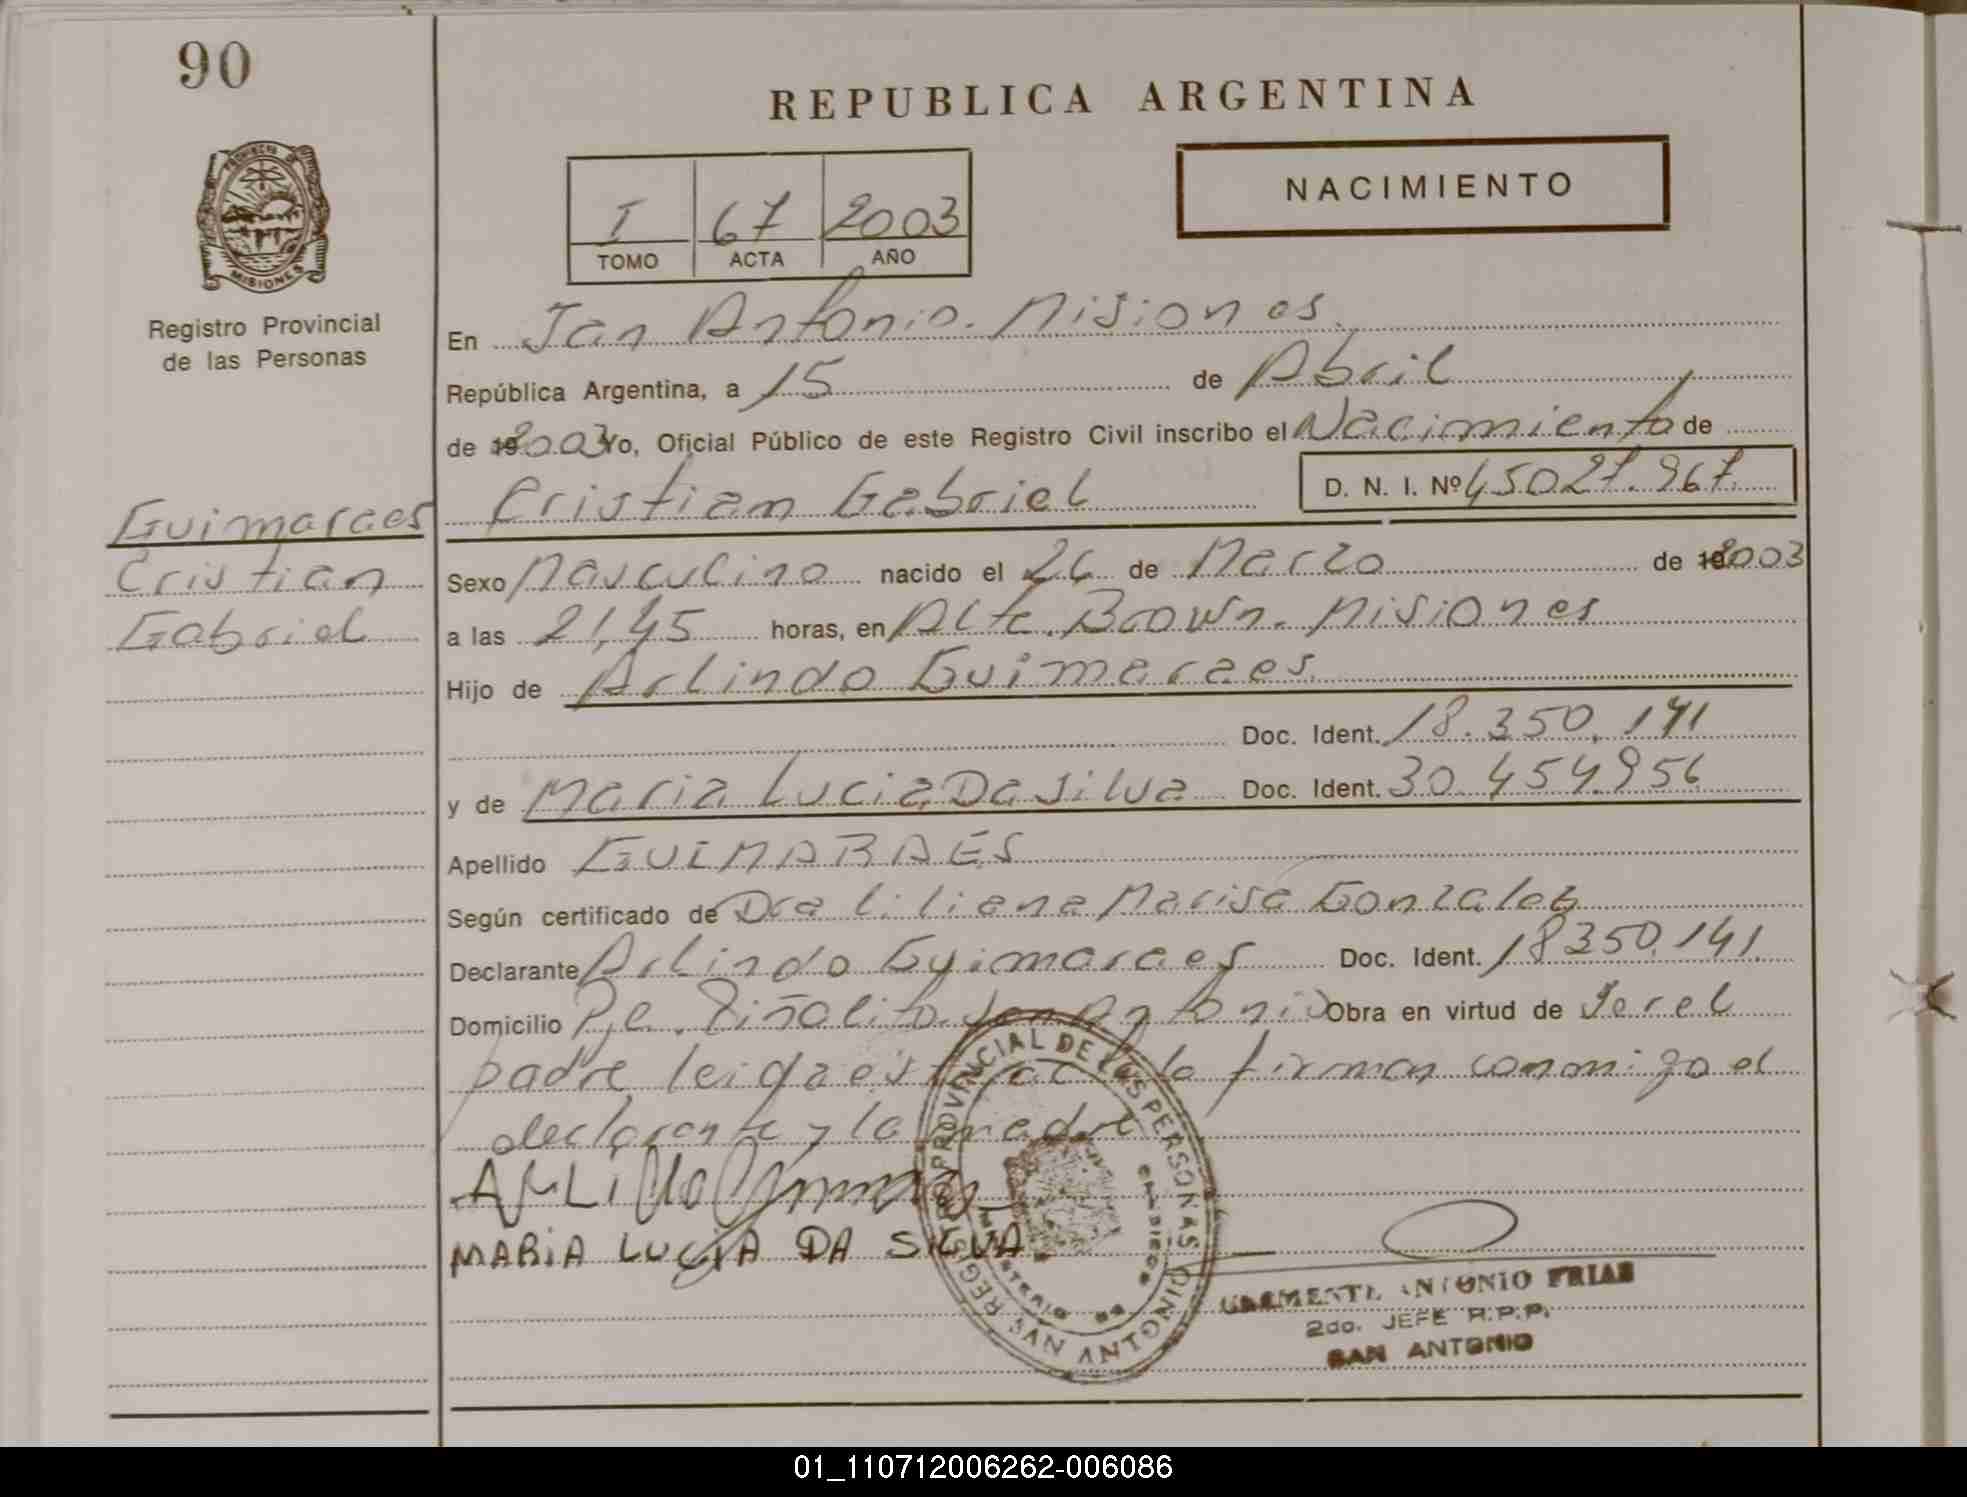 90
REPUBLICA ARGENTINA
PROVINCIA DE
MISIONES
NACIMIENTO
I 67 2003
TOMO ACTA AÑO
Registro Provincial
de las Personas
En San Antonio. Misiones.
República Argentina, a 15 de Abril
de 2003 Yo, Oficial Público de este Registro Civil inscribo el Nacimiento de
Cristian Gabriel D. N. I. Nº 45027.967.
Guimaraes
Cristian
Gabriel
Sexo Masculino nacido el 26 de Marzo de 2003
a las 21,45 horas, en Alte. Brown. Misiones
Hijo de Arlindo Guimaraes.
Doc. Ident. 18.350.141
y de Maria Lucia Da Silva Doc. Ident. 30.454.956
Apellido GUIMARAES
Según certificado de Dra Liliana Marisa Gonzalez
Declarante Arlindo Guimaraes Doc. Ident. 18350.141.
Domicilio Pje. Piñalito San Antonio Obra en virtud de Ser el
padre leida el firman conmigo el
declarante y la madre
ARLINDO
MARIA LUCIA DA SILVA
REGISTRO PROVINCIAL DE LAS PERSONAS
SAN ANTONIO
ANTONIO FRIAS
2do. JEFE R.P.P.
SAN ANTONIO
01_110712006262-006086